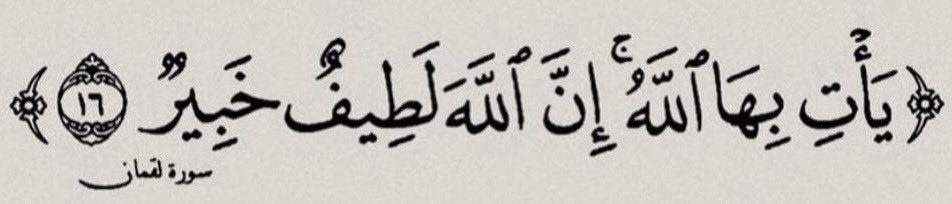 ﴿ يَأۡتِ بِهَا ٱللَّهُۚ إِنَّ ٱللَّهَ لَطِيفٌ خَبِيرٞ ١٦ ﴾
سورة لقمان